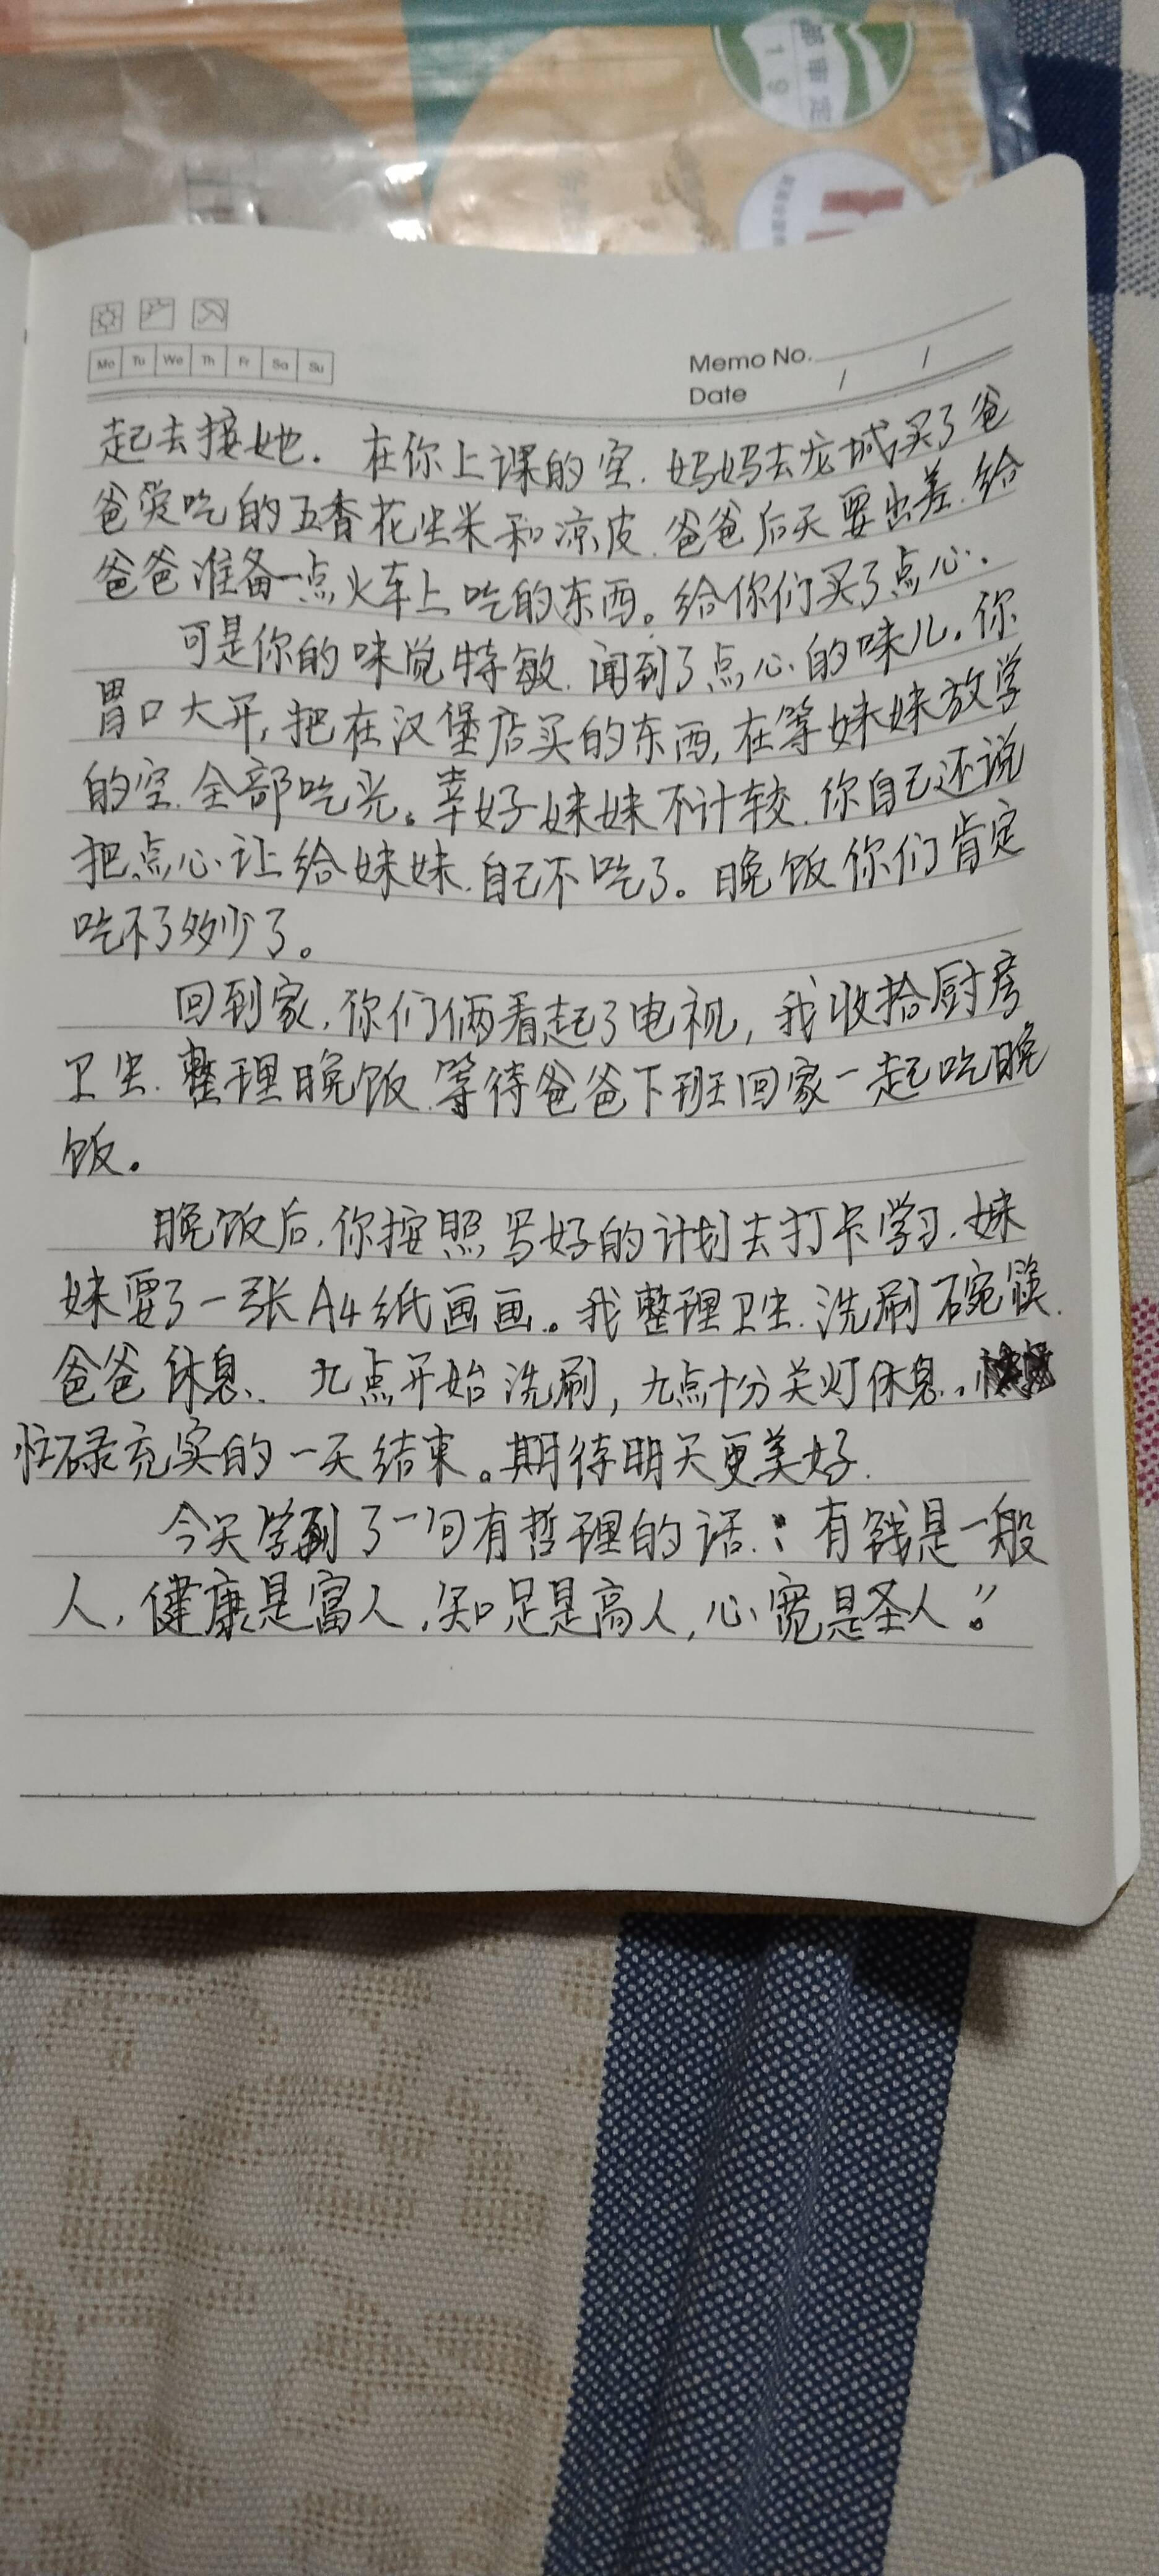 部审定
19
Mo Tu We Th Fr Sa Su
Memo No.
Date / /
起去接她. 在你上课的空.妈妈去龙城买了爸
爸爱吃的五香花生米和凉皮.爸爸后天要出差.给
爸爸准备一点火车上吃的东西。给你们买了点心.
可是你的味觉特敏.闻到了点心的味儿.你
胃口大开,把在汉堡店买的东西,在等妹妹放学
的空.全部吃光。幸好妹妹不计较.你自己还说
把点心让给妹妹.自己不吃了。晚饭你们肯定
吃不了多少了。
回到家,你们俩看起了电视,我收拾厨房
卫生.整理晚饭.等待爸爸下班回家一起吃晚
饭。
晚饭后,你按照写好的计划去打卡学习.妹
妹要了一张A4纸画画。我整理卫生.洗刷碗筷.
爸爸休息、九点开始洗刷,九点十分关灯休息.
忙碌充实的一天结束。期待明天更美好.
今天学到了一句有哲理的话:有钱是一般
人,健康是富人,知足是高人,心宽是圣人。”